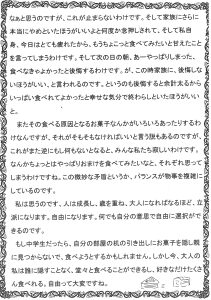 なぁと思うのですが、これが止まらないわけです。そして家族にさらに
本当にやめといたほうがいいよと何度か念押しされて、そして私自
身、今日はとても疲れたから、もうちょっと食べてみたいと甘えたこと
を言ってしまうわけです。そして次の日の朝、あーやっぱりしまった、
食べなきゃよかったと後悔するわけです。が、この時家族に、後悔しな
いほうがいい、と言われるのです。というのも後悔すると余計太るから
いっぱい食べれてよかったと幸せな気分で終わらしといたほうがいい
と。
またその食べる原因となるお菓子なんかがいろいろあったりするわ
けなんですが、それがそもそもなければいいと言う説もあるのですが、
これがまた逆にもし何もないとなると、みんな私たち寂しいわけです。
なんかちょっとはやっぱりおまけを食べてみたいなと、それぞれ思って
しまうわけですね。この微妙な矛盾というか、バランスが物事を複雑に
しているのです。
私は思うのです。人は成長し、歳を重ね、大人になればなるほど、立
派になります。自由になります。何でも自分の意思で自由に選択がで
きるのです。
もし中学生だったら、自分の部屋の机の引き出しにお菓子を隠し親
に見つからないで、食べようとするかもしれません。しかし今、大人の
私は誰に隠すことなく、堂々と食べることができるし、好きなだけたくさ
ん食べれる。自由って大変ですね。